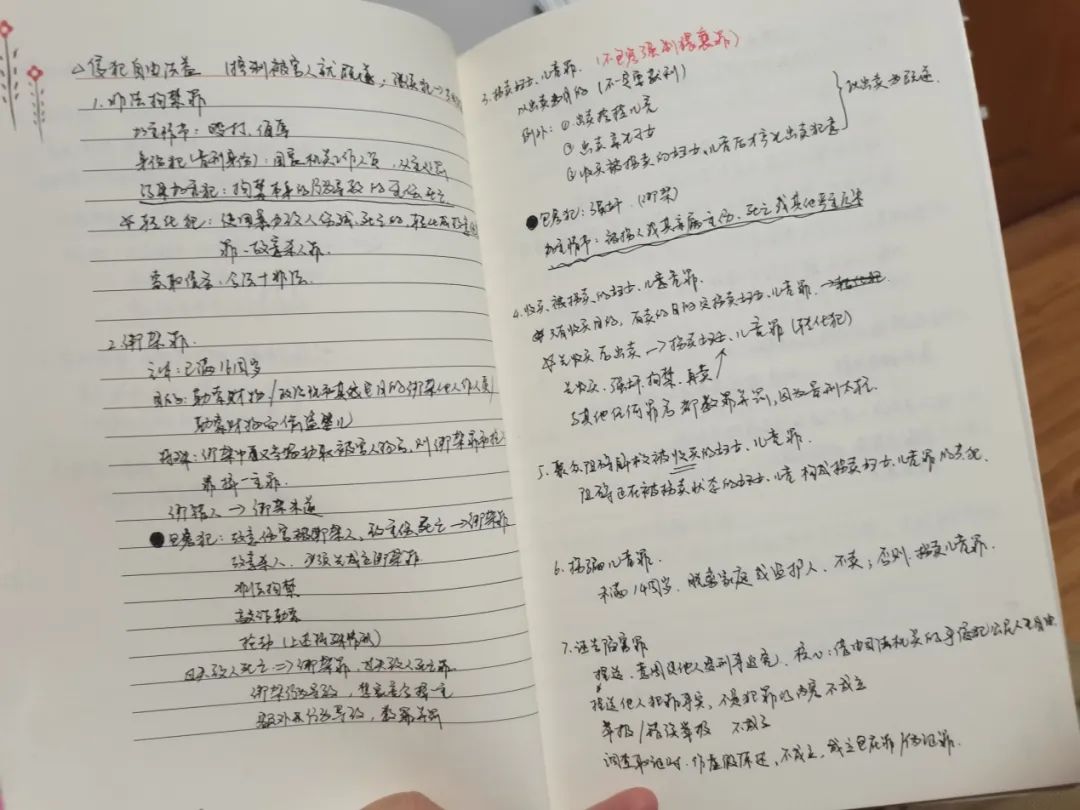 △侵犯自由法益 (控制被害人就既遂;
1.非法拘禁罪
加重情节:殴打、侮辱
身份犯(量刑身份):国家机关工作人员,从重处罚
结果加重犯:拘禁本身的行为导致的重伤死亡
轻化犯:使用暴力致人伤残、死亡的,转化成故意
罪、故意杀人罪.
索取债务,合法+非法.
2.绑架罪.
主体:已满16周岁
目的:勒索财物/政治性和其他目的绑架他人作人质/
勒索财物而偷盗婴儿
绑架中又当场劫取被害人财物,则绑架罪和抢
择一重罪.
绑错人→绑架未遂
●包容犯:故意伤害被绑架人,致重伤、死亡→绑架罪
故意杀人、
非法拘禁
敲诈勒索
抢劫(上述特殊情形)
过失致人死亡⇒绑架罪、过失致人死亡罪.
绑架行为导致,想象竞合择一重
额外行为导致,数罪并罚
3.拐卖妇女、儿童罪. (不包容强制猥亵罪)
以出卖为目的(不一定要获利)
例外:①出卖捡拾儿童
②出卖亲生子女
③收买被拐卖的妇女、儿童后才产生出卖犯意
以出卖为既遂
●包容犯:强奸.(绑架)
加重情节:被拐人或其亲属重伤、死亡或其他严重后果
4.收买被拐卖的妇女、儿童罪.
只有收买目的,有卖的目的定拐卖妇女、儿童罪.
先收买后出卖→拐卖妇女、儿童罪(转化犯)
先收买、强奸、拘禁、再卖
与其他任何罪名都数罪并罚,因为量刑太轻.
5.聚众阻碍解救被收买的妇女、儿童罪.
阻碍还在被拐卖状态的妇女、儿童构成拐卖妇女、儿童罪的共犯.
6.拐骗儿童罪.
未满14周岁、脱离家庭或监护人、不卖;否则拐卖儿童罪.
7.诬告陷害罪
捏造、意图使他人受刑事追究、核心:借由司法机关的手侵犯公民人身自由.
捏造他人犯罪事实,不侵犯罪的内容不成立
举报/错误举报 不成立
调查取证时、作虚假陈述,不成立,成立包庇罪/伪证罪.